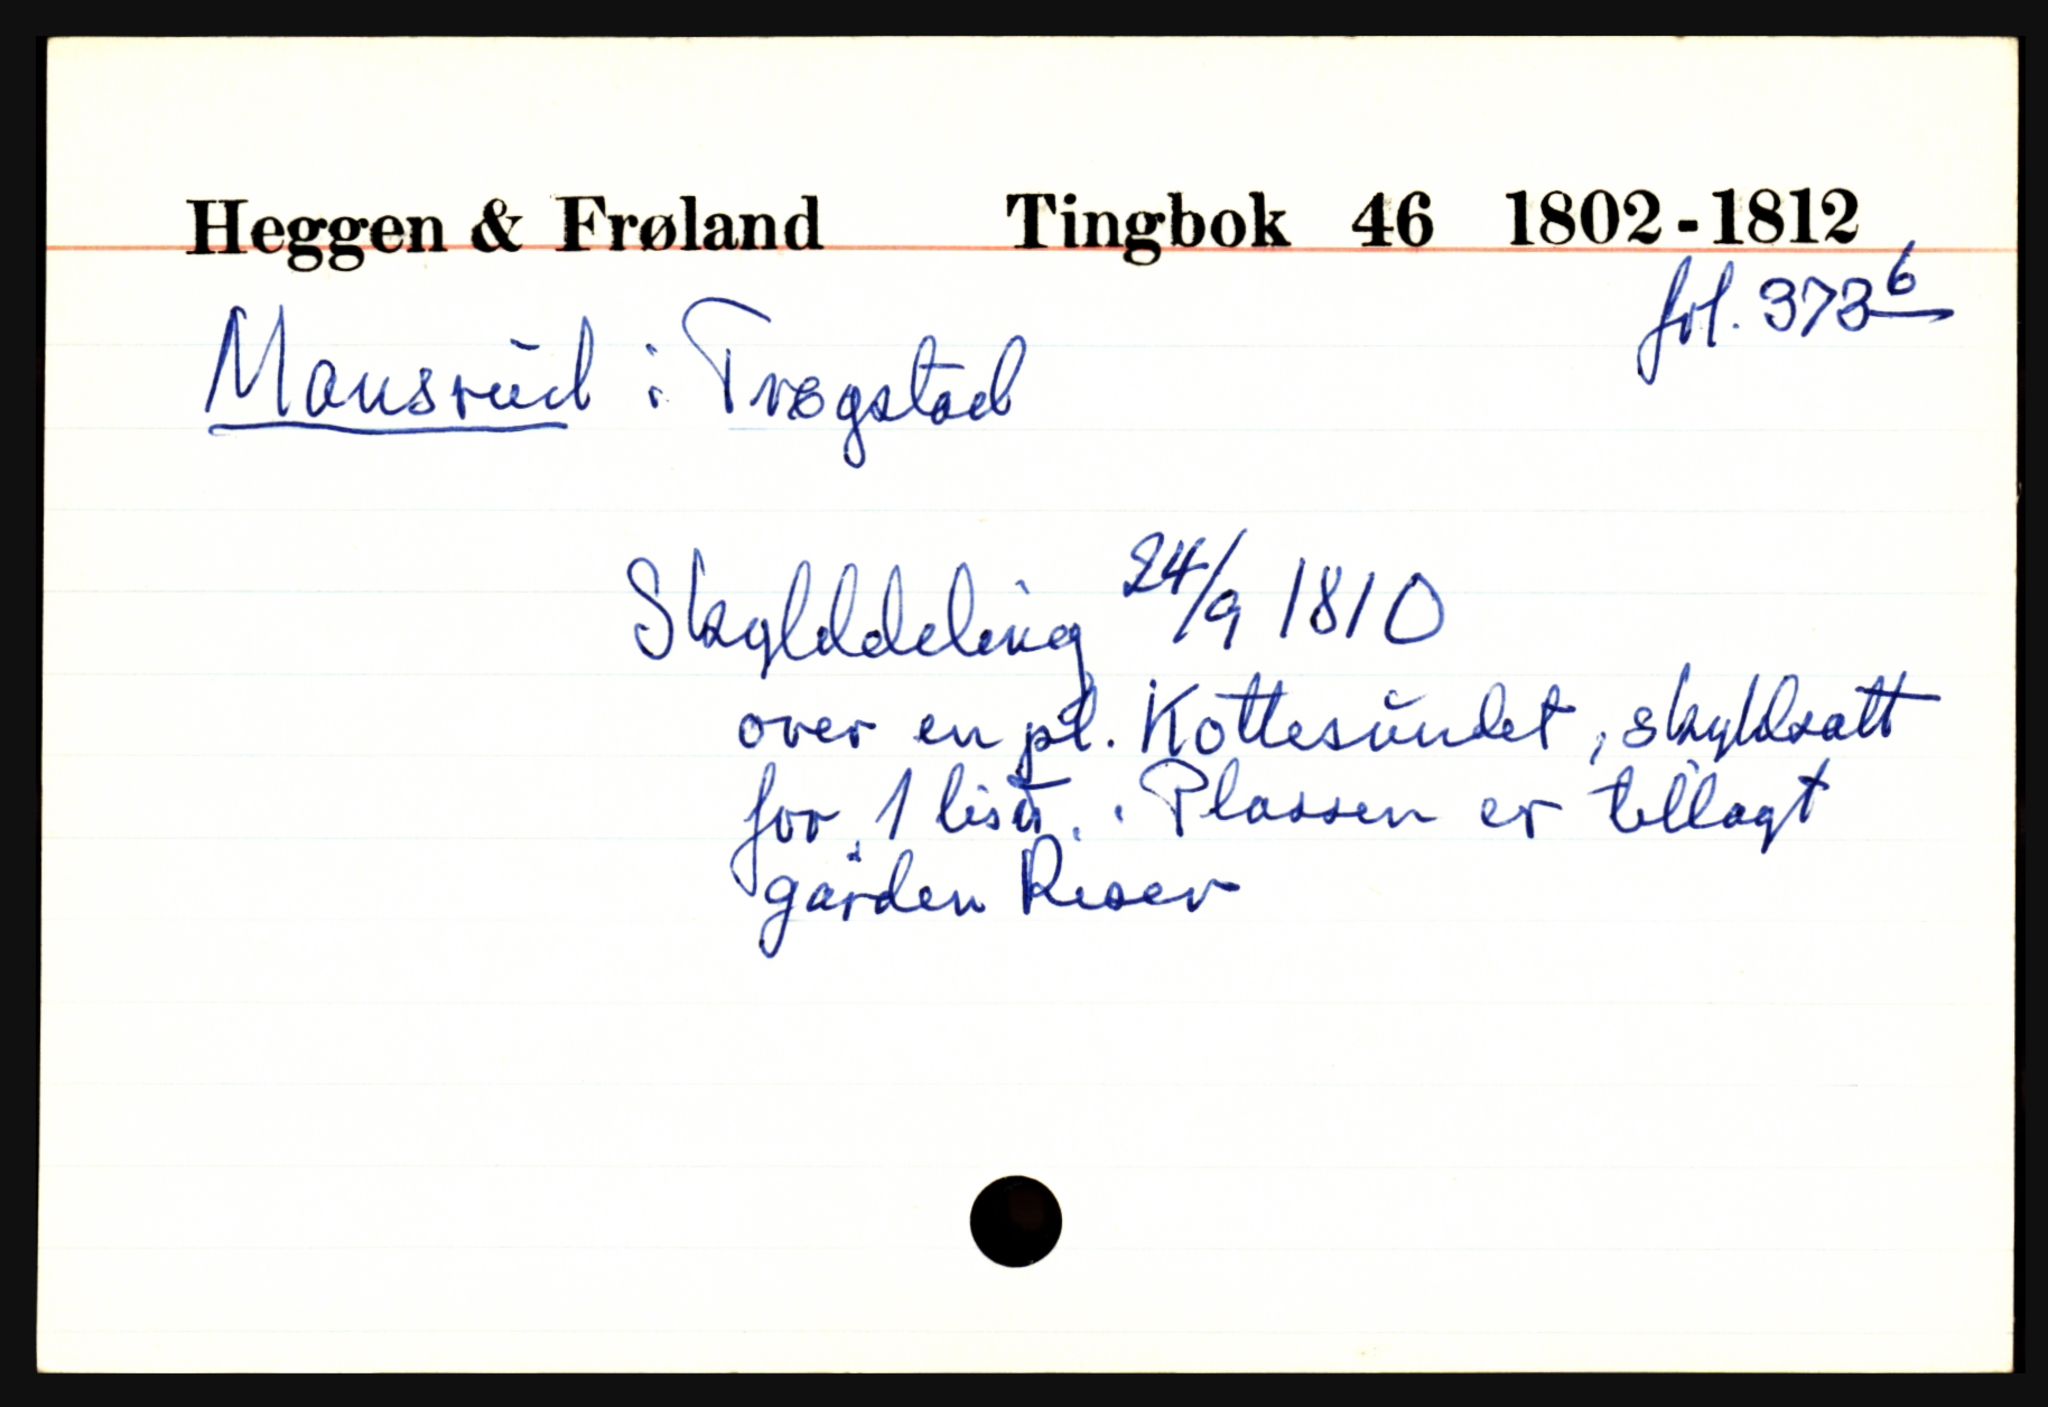 Heggen & Frøland Tingbok 46 1802-1812
fol. 373b
Mansrud i Trøgstad
Skylddeling 24/9 1810
over en pl. Kottesundet, skyldsatt
for 1 lisp. Plassen er tillagt
gården Riser